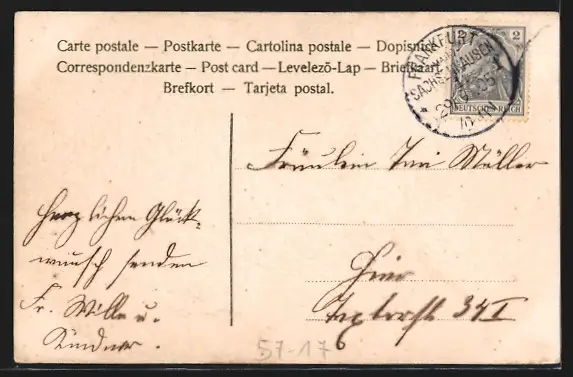 Carte postale — Postkarte — Cartolina postale — Dopisnice
Correspondenzkarte — Post card — Levelező-Lap — Briefkaart
Brefkort — Tarjeta postal.
FRANKFURT
SACHSENHAUSEN
29
2
DEUTSCHES REICH
Fräulein Müller
Herzlichen Glück-
wunsch senden
Fr. Wille u.
Kinder.
Hier
34 I
57-17
6